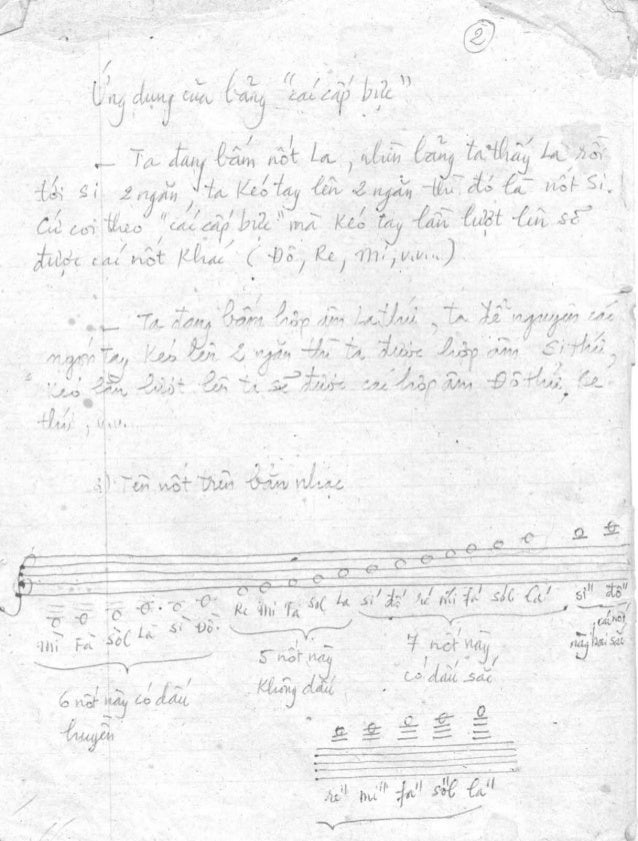 2
Ứng dụng của bảng "các cấp bực"
– Ta đang bấm nốt La, nhìn bảng ta thấy La rồi
tới si 2 ngăn, ta kéo tay lên 2 ngăn thì đó là nốt Si.
Cứ coi theo "các cấp bực" mà kéo tay lần lượt lên sẽ
được các nốt khác (Đô, Re, Mi, v.v...)
– Ta đang bấm hợp âm La thứ, ta để nguyên các
ngón tay kéo lên 2 ngăn thì ta được hợp âm Si thứ,
kéo lần lượt lên ta sẽ được các hợp âm Đô thứ, Re
thứ, v.v.
Tên nốt trên bản nhạc
Mì Fà Sòl Là Sì Đồ Re Mi Fa Sol La sí đố ré mí fá sól lá si" đô"
6 nốt này có dấu
huyền
5 nốt này
không dấu
7 nốt này
có dấu sắc
các nốt
này hai sắc
re" mi" fa" sol" la"